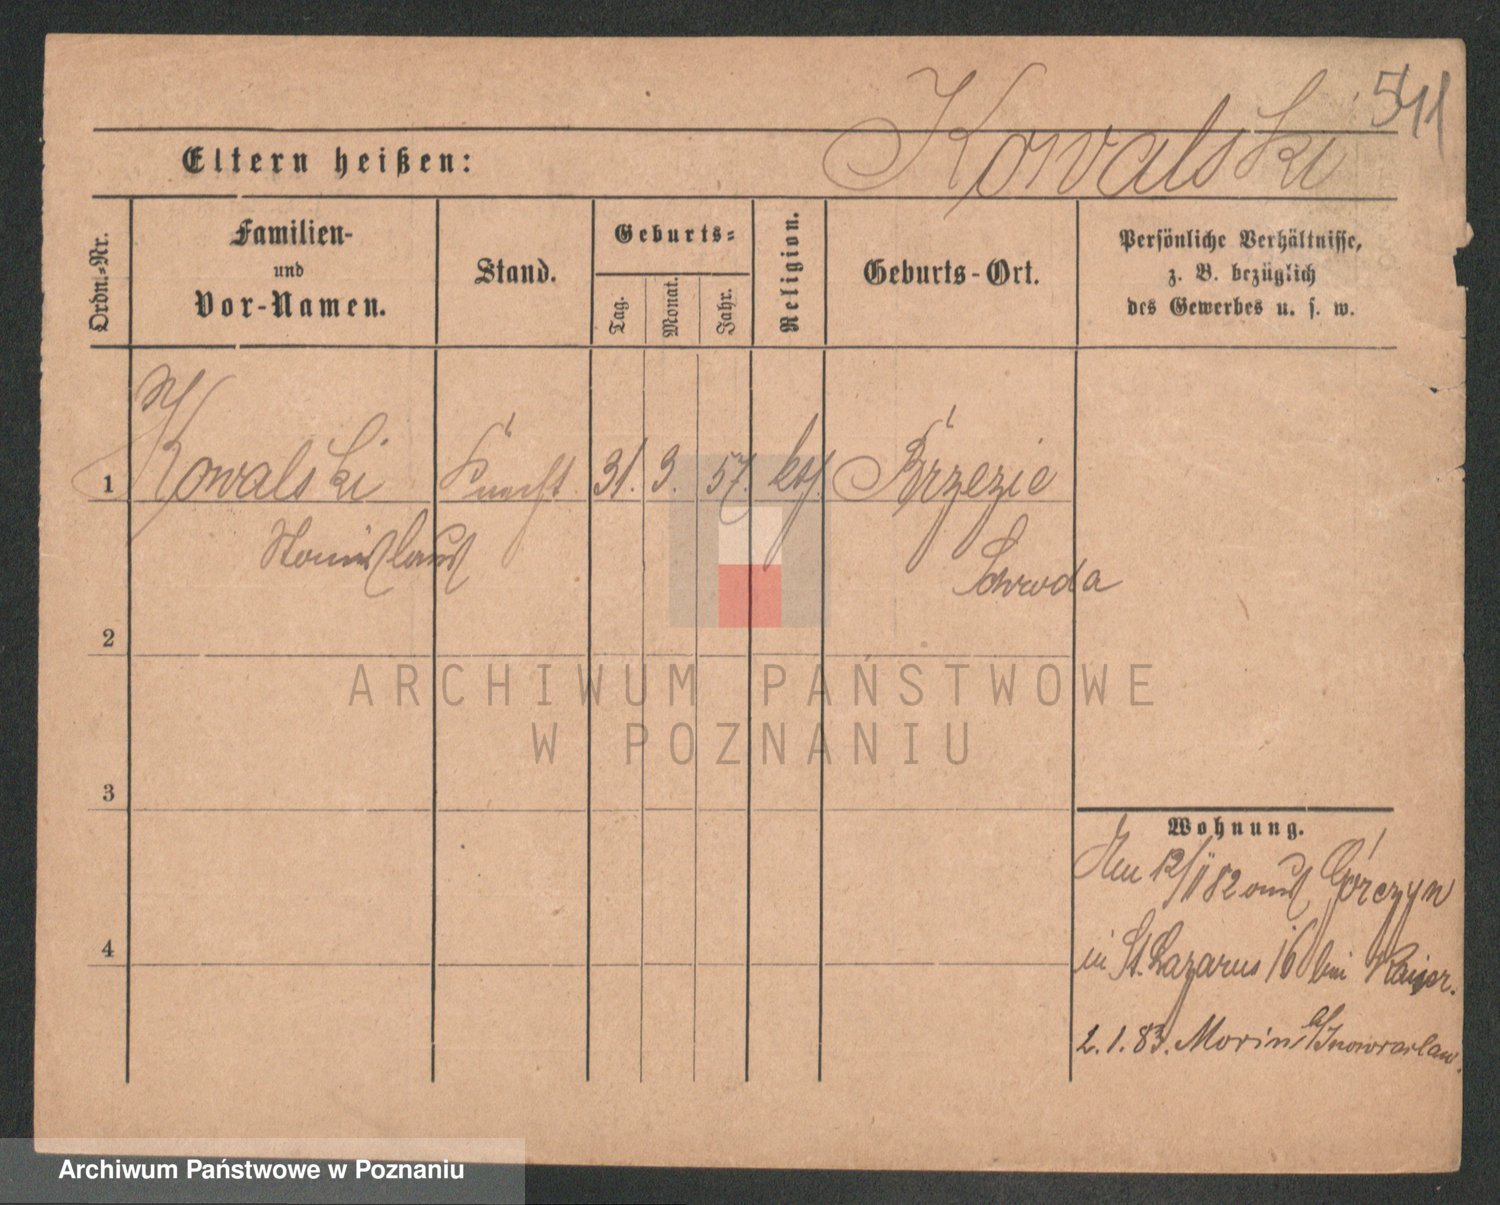 541
Kowalski
Eltern heißen:
Ordn.-Nr.
Familien-
und
Vor-Namen.
Stand.
Geburts-
Tag.
Monat.
Jahr.
Religion.
Geburts-Ort.
Persönliche Verhältnisse,
z. B. bezüglich
des Gewerbes u. s. w.
1 Kowalski Knecht 31. 3. 57. kth. Brzezie
Stanislaus Schroda
2
ARCHIWUM PAŃSTWOWE
W POZNANIU
3
4
Wohnung.
12/II 82 aus Górczyn
in St. Lazarus 16 bei Kaiser.
2. 1. 83. Morin b/Inowraclaw.
Archiwum Państwowe w Poznaniu